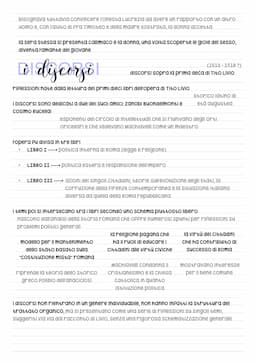 bisognava tuttavia convincere l'onesta lucrezia ad avere un rapporto con un altro
uomo e, con l'aiuto di fra timoteo e della madre sostrata, la donna accetta
la sera stessa si presenta callimaco e la donna, una volta scoperte le gioie del sesso,
diventa l'amante del giovane
DISCORSI
i discorsi
(1513 - 1518 ?)
discorsi sopra la prima deca di Tito Livio
riflessioni nate dalla lettura dei primi dieci libri dell'opera di Tito Livio
storico latino di
età augustea
i discorsi sono dedicati a due dei suoi amici: zanobi buondelmonti e
cosimo rucellai
esponenti del circolo di intellettuali che si riunivano degli orti
oricellari e che vedevano machiavelli come un maestro
l'opera fu divisa in tre libri
• LIBRO I ⟶ politica interna di Roma (legge e religione)
• LIBRO II ⟶ politica estera e l'espansione dell'impero
• LIBRO III ⟶ azioni dei singoli cittadini, teorie sull'evoluzione degli stati, la
corruzione della Firenze contemporanea e la situazione italiana
diversa da quella della Roma repubblicana
i temi poi si intersecano tra i libri secondo uno schema piuttosto libero
nascono dall'analisi della storia romana che offre numerosi spunti per riflessioni su
problemi politici generali
modello per il mantenimento
dello stato basato sulla
"costituzione mista" romana
la religione pagana che
ha il ruolo di educare i
cittadini alle virtù civiche
la virtù dei cittadini
che ha contribuito al
successo di Roma
riprende la teoria dello storico
greco Polibio dell'anaciclosi
machiavelli condanna il
cristianesimo e la chiesa
cattolica in quanto
istituzione politica
mostravano interesse
per il bene comune
i discorsi non rientrano in un genere individuabile, non hanno infatti la struttura del
trattato organico, ma si presentano come una serie di riflessioni su singoli temi,
suggeriti via via dal racconto di Livio, senza una rigorosa schematizzazione generale